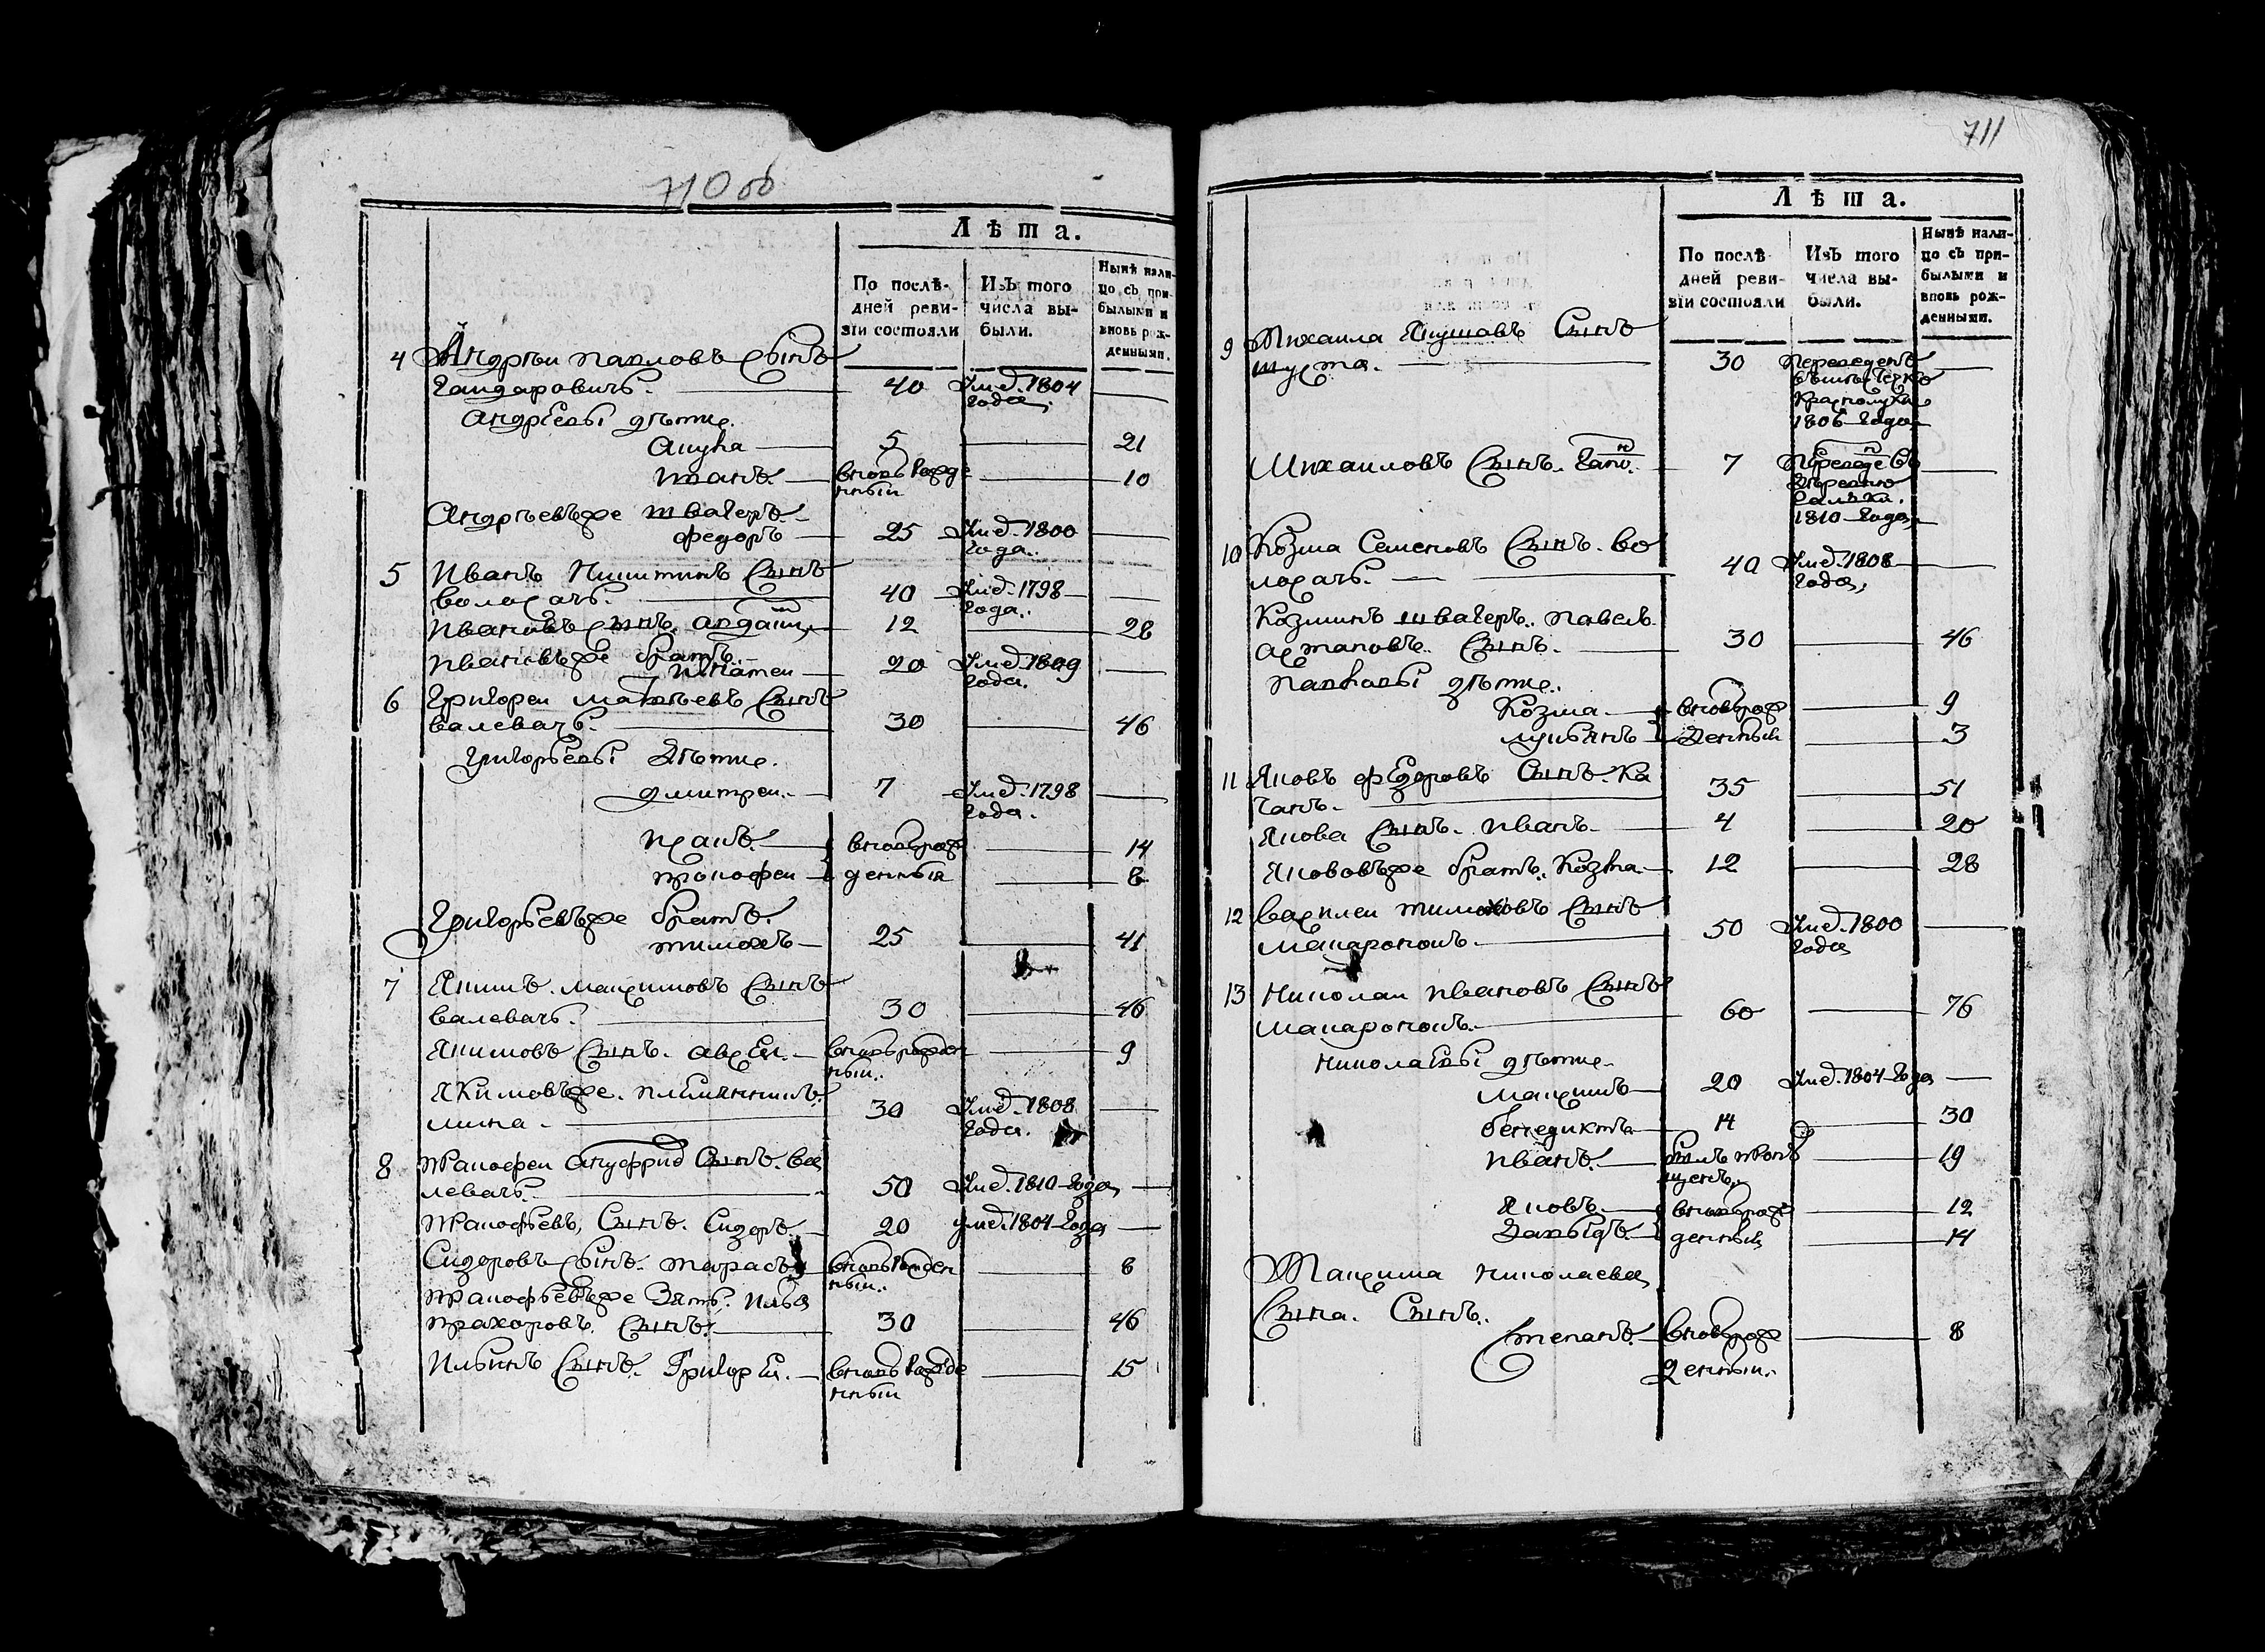 710 об
Лѣта.
По послѣ-
дней реви-
зіи состояли
Изъ того
числа вы-
были.
Нынѣ нали-
цо съ при-
былыми и
вновь рож-
денными.
4 Андреи павловъ сынъ
Гандаровичъ. 40 Умер. 1804
Года.
Андрѣевы дѣти.
5 21
вновь рожде 10
нный
Андрѣевъже швагеръ
федоръ 25 Умер. 1800
года.
5 Иванъ Никитинъ сынъ
волосачъ. 40 Умер. 1798
Года.
Ивановъ сынъ 12 28
Ивановъже братъ
Игнатеи 20 Умер. 1809
Года.
6 Григореи матвѣевъ сынъ
валевачъ. 30 46
Григорьевы дѣти.
дмитреи 7 Умер. 1798
Года.
Исакъ вновьрож 14
прокофеи денныя 8
Григорьевъже братъ
тимохъ 25 41
7 Якимъ максимовъ сынъ
валевачъ. 30 46
Якимовъ сынъ. авсеи вновь рожден 9
ныи.
Якимовъже племянникъ
мина 30 Умер. 1808
Года.
8 прокофеи ануфрие сынъ. ва
левачъ. 50 Умер. 1810 Года
прокофьевъ, сынъ. Сидоръ 20 Умер. 1804 Года
Сидоровъ сынъ. тарасъ вновь рожден 8
ныи.
прокофьевъже Зять. Илья
прохоровъ сынъ. 30 46
Ильинъ сынъ. Григореи. вновь рожде 15
нныи
711
Лѣта.
По послѣ-
дней реви-
зіи состояли
Изъ того
числа вы-
были.
Нынѣ нали-
цо съ при-
былыми и
вновь рож-
денными.
9 Михаила Якушовъ сынъ
шуста. 30 Переведенъ
1806 Года
Михаиловъ сынъ. 7 Переведе въ
деревню
1810 Года
10 Козма Семеновъ сынъ. во
лосачъ. 40 Умер. 1808
Года,
Козминъ швагеръ. павелъ
астаповъ. сынъ. 30 46
павловы дѣти.
Козма вновьрож 9
лукьянъ денныи 3
11 Яковъ федоровъ сынъ. Ка
чанъ. 35 51
Якова сынъ. иванъ. 4 20
Якововъже братъ. Козма 12 28
12 василеи тимоховъ сынъ
макарономъ. 50 Умер. 1800
года
13 Николаи ивановъ сынъ
макарономъ. 60 76
Николаевы дѣти.
максимъ 20 Умер. 1804 Года
бенедиктъ 14 30
иванъ. былъ пропу 19
щенъ.
Яковъ. вновьрож 12
давыдъ. денныи 14
Максима николаева
сына. Сынъ.
степанъ. вновьрож 8
денныи.